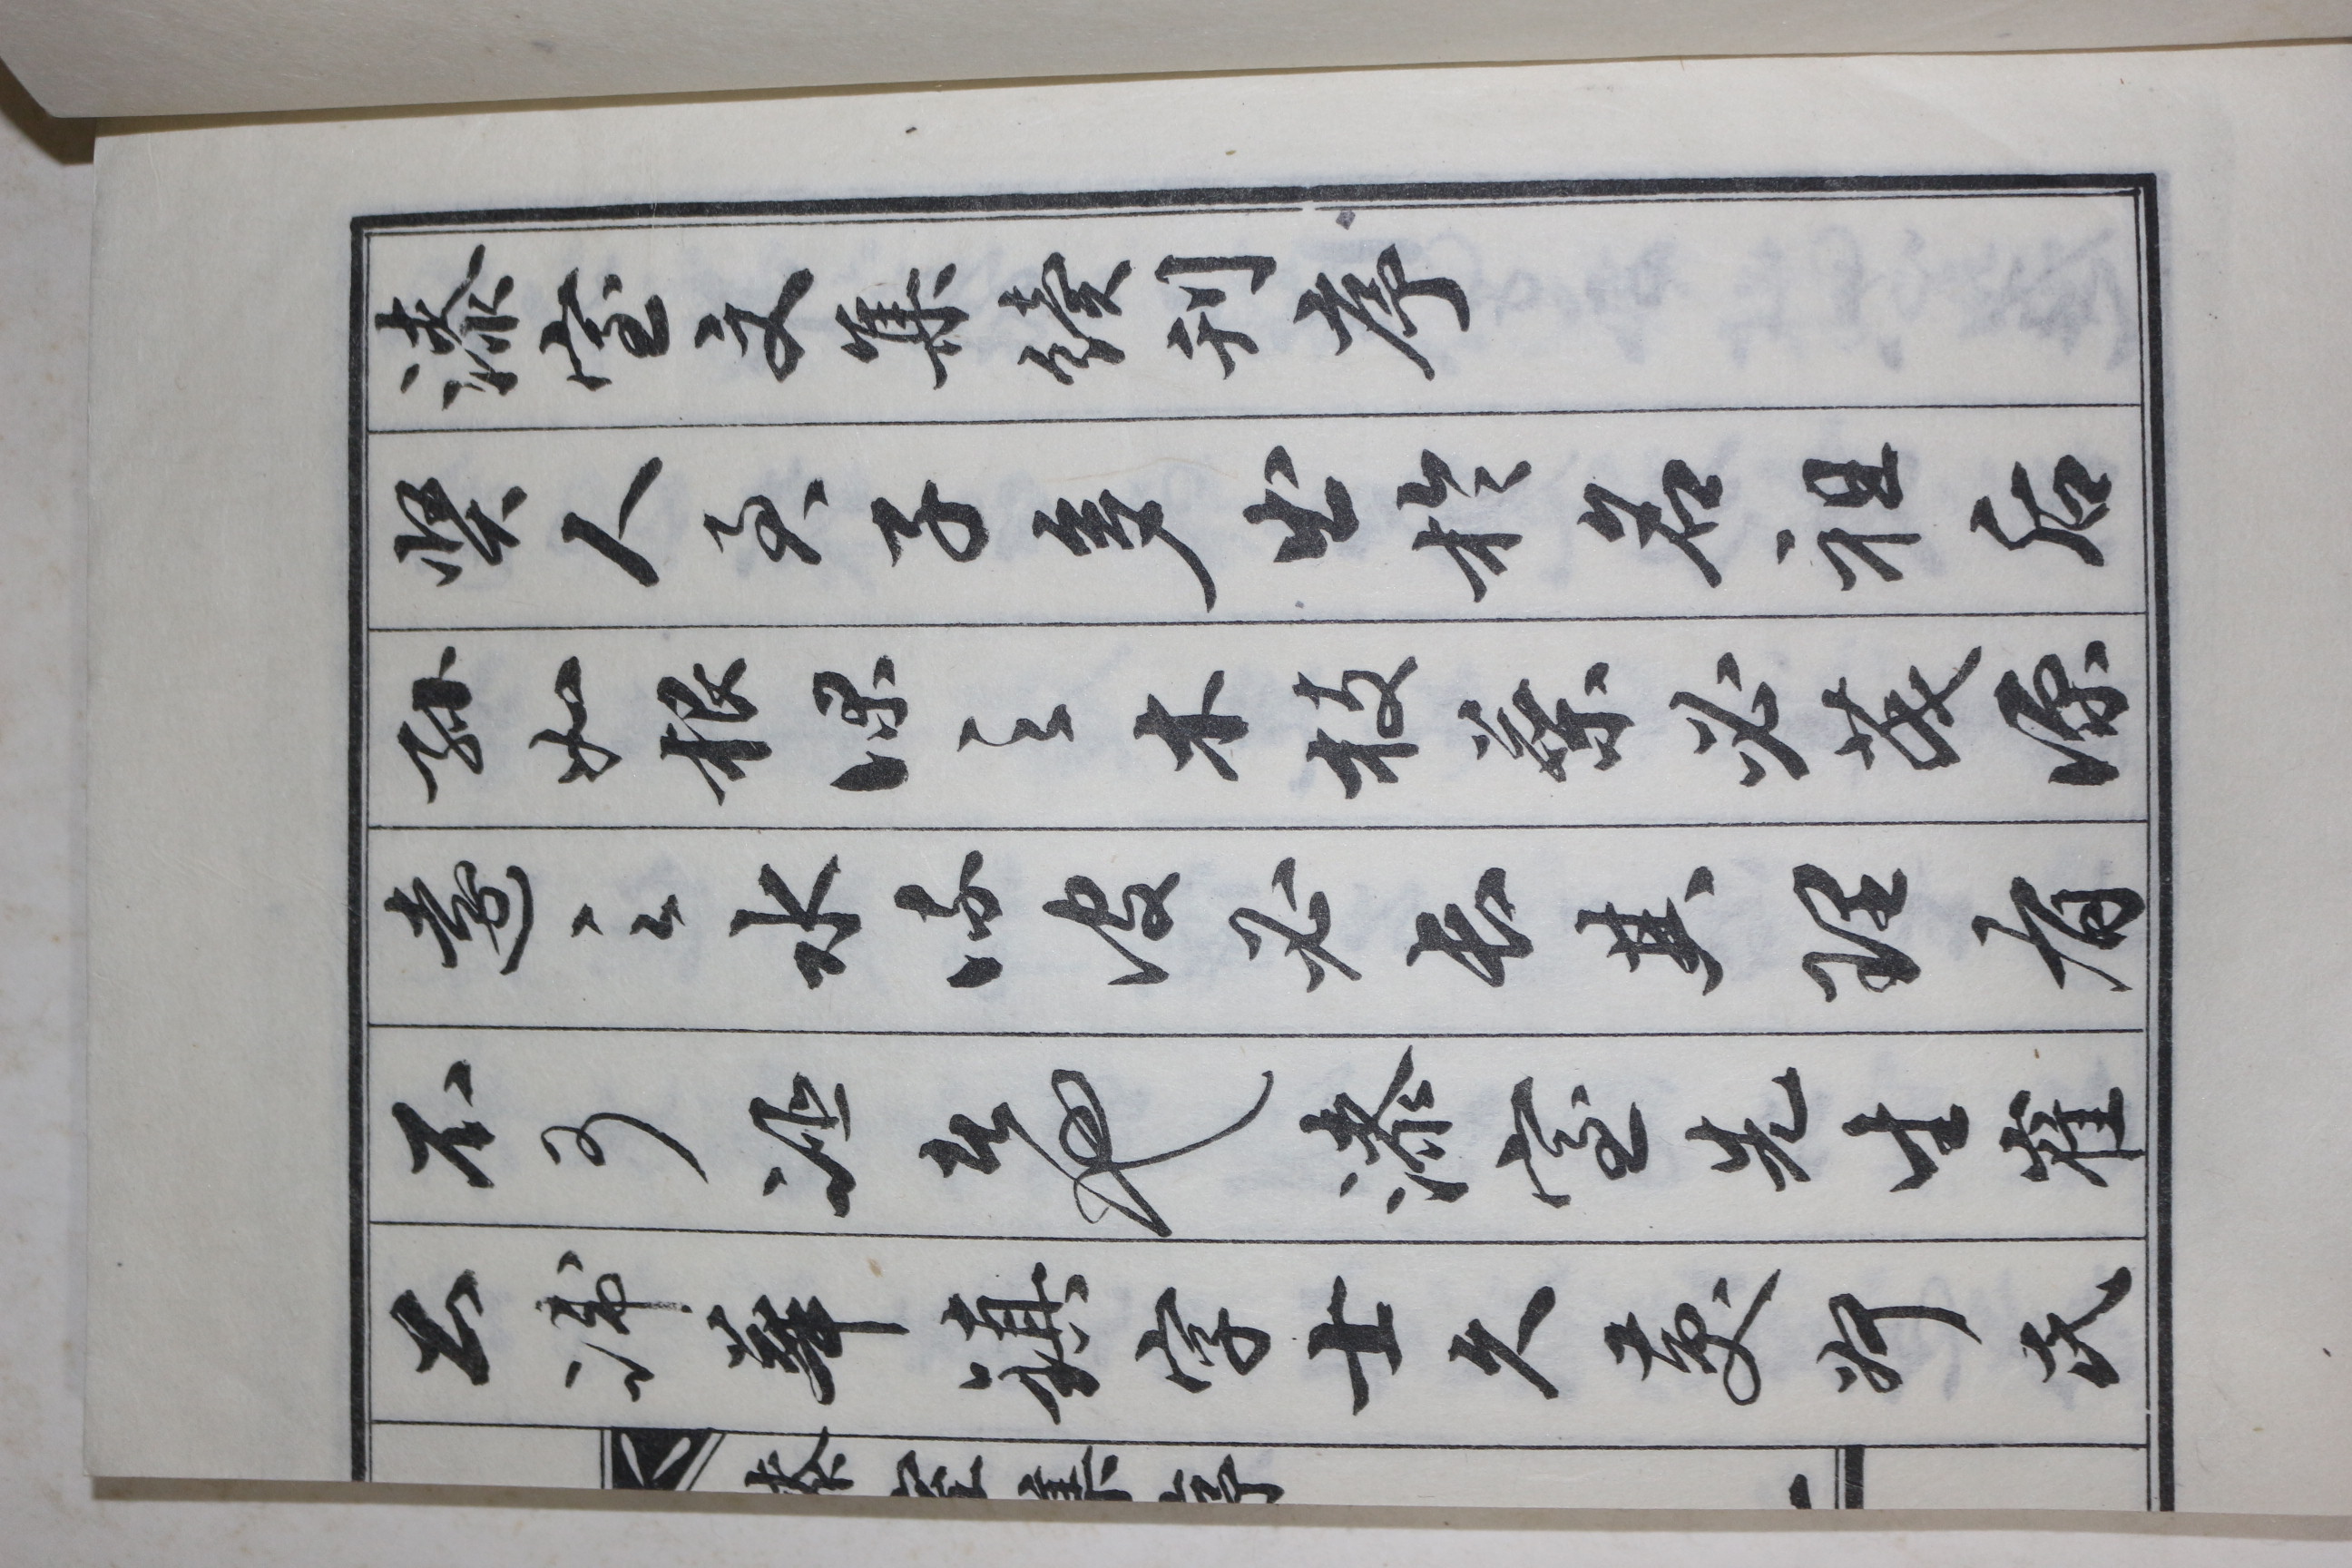 漆室文集續刊序
賢人君子多出於名祖后
孫如根深之木枝葉必茂源
遠之水流波必長其理有
不可誣者也漆室先生崔
公諱華鎮字士久慶州氏
漆室集序
一